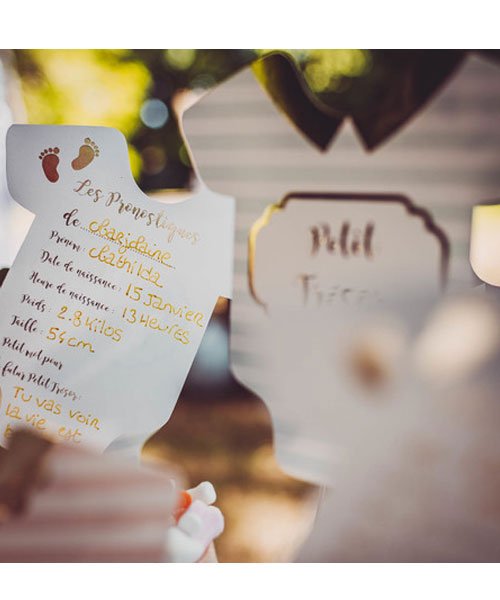 Les Pronostiques
de
Prénom: Mathilda
Date de naissance: 15 Janvier
Heure de naissance: 13 Heures
Poids: 2.8 kilos
Taille: 54cm
Petit mot pour
futur Petit Trésor:
Tu vas voir
la vie est
Petit
Trésor